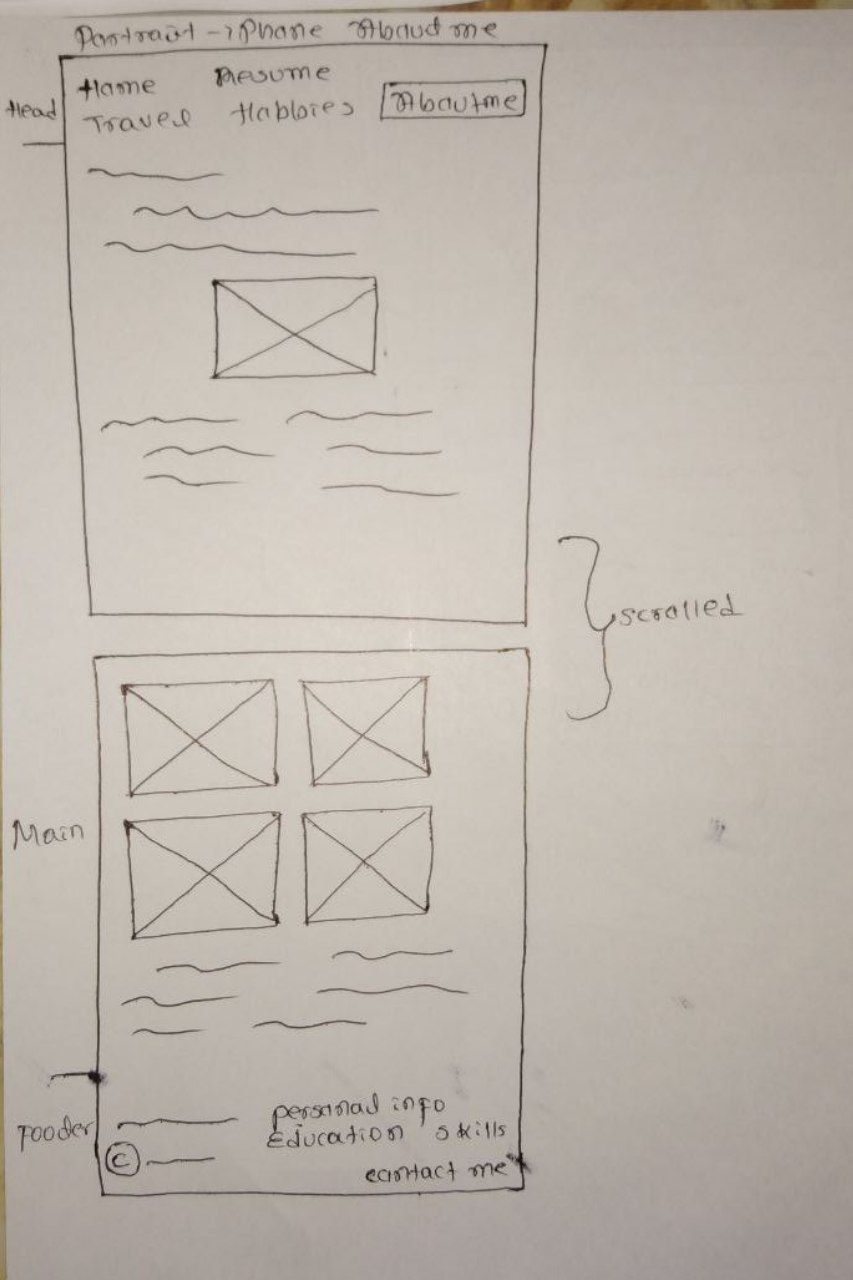 Portrait -> iPhone About me
Head
Home Resume
Travel Habbies Aboutme
scrolled
Main
Fooder
personal info
Education skills
©
contact me